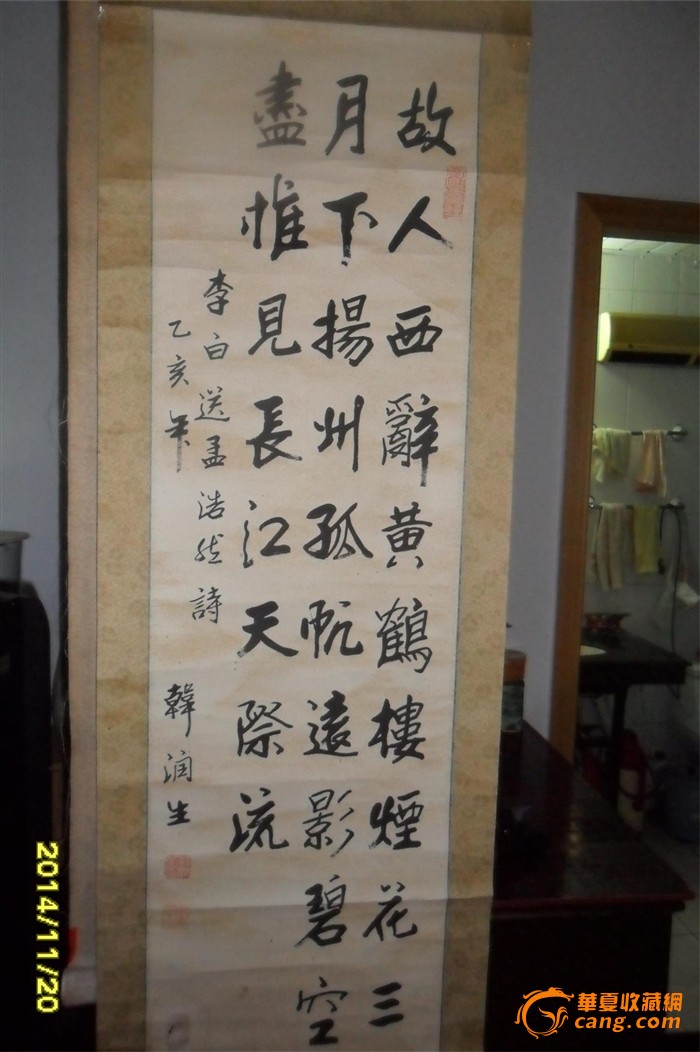 故人西辭黄鶴樓煙花三
月下揚州孤帆遠影碧空
盡惟見長江天際流
李白送孟浩然詩
乙亥年
韓润生
2014/11/20
華夏收藏網
cang.com